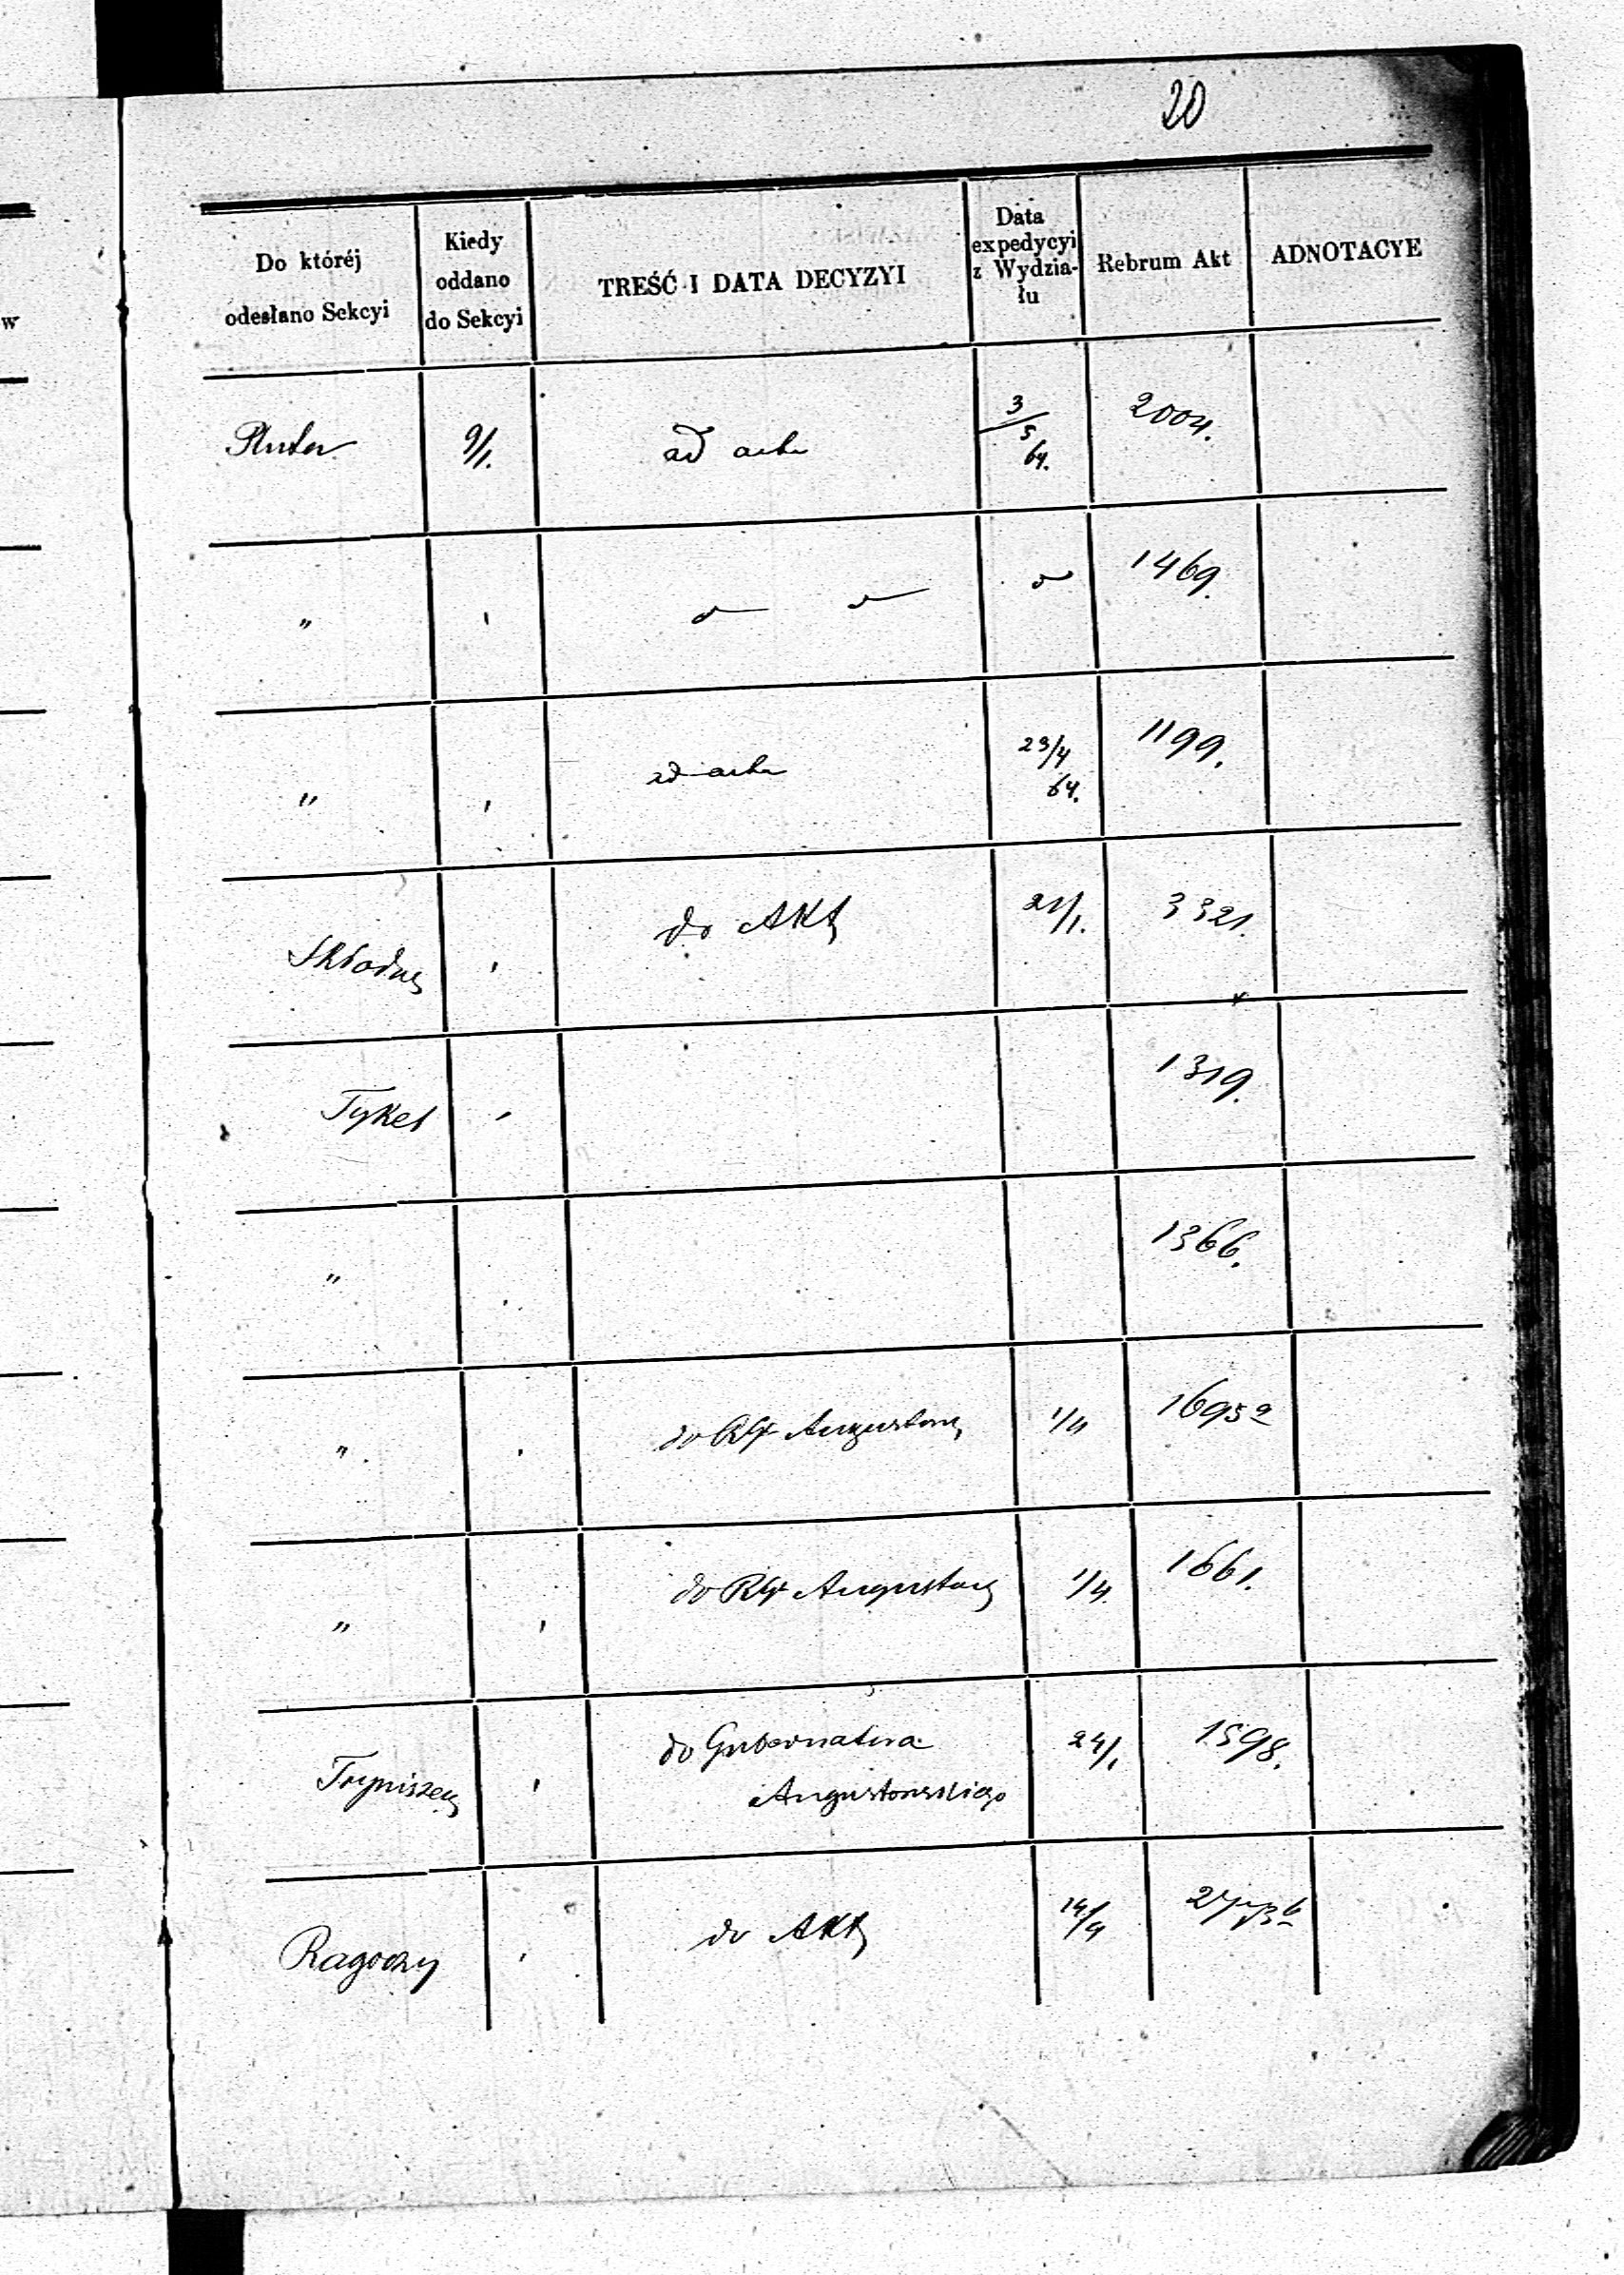 20
Do któréj odesłano Sekcyi | Kiedy oddano do Sekcyi | TREŚĆ I DATA DECYZYI | Data expedycyi z Wydzia-łu | Rebrum Akt | ADNOTACYE
Pluter | 9/1. | ad acta | 3/5 64. | 2004.
" | " | d d | d | 1469.
" | " | ad acta | 23/4 64. | 1199.
Składny | " | do Akt | 21/1. | 3321.
Tykel | " | 1319.
" | " | 1366.
" | " | do RG Augustow | 1/4 | 1695a
" | " | do RG Augustow | 1/4 | 1661.
" | do Gubernatora | 24/1 | 1598.
Augustowskiego
Ragoczy | " | do Akt | 14/4
w